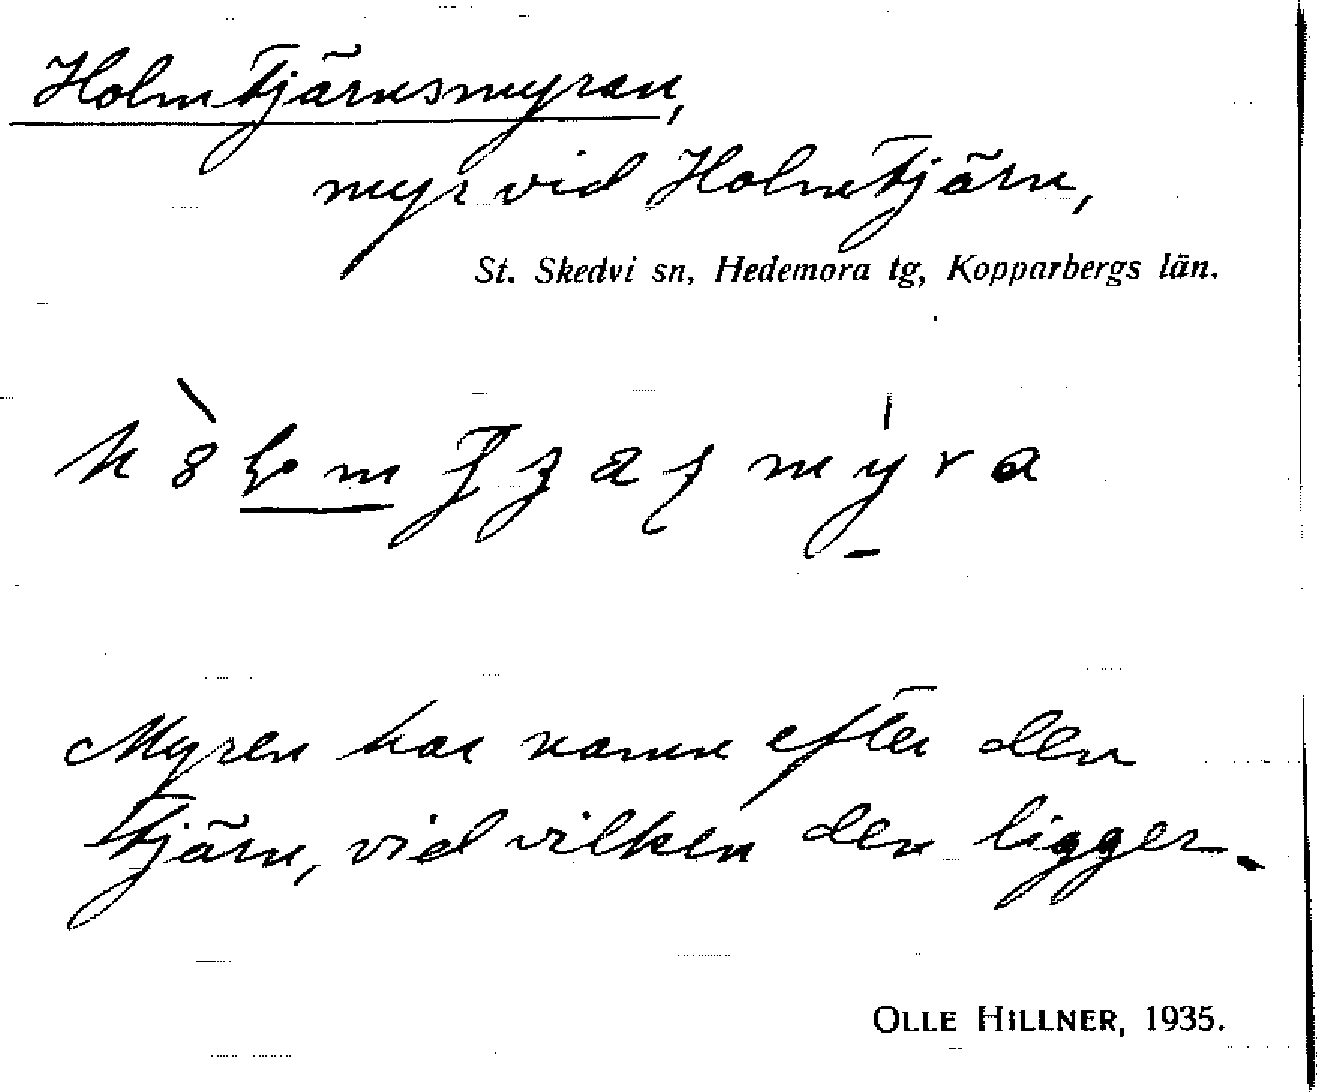 Holmtjärnsmyran,
myr vid Holmtjärn,
St. Skedvi sn, Hedemora tg, Kopparbergs län.
Myren har namn efter den
tjärn, vid vilken den ligger.
OLLE HILLNER, 1935.